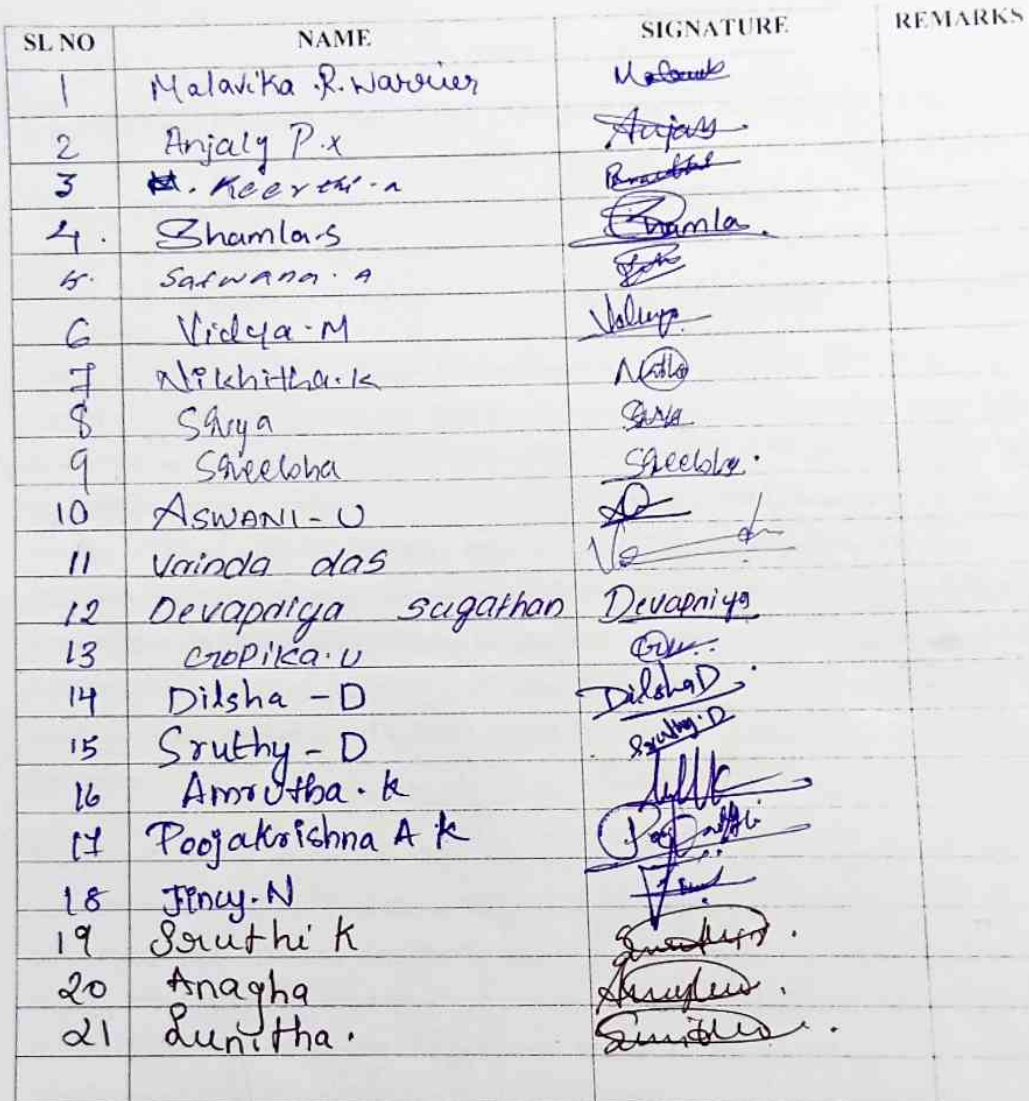 SL NO NAME SIGNATURE REMARKS
1 Malavika .R. Warrier
2 Anjaly P.x Anjaly.
3 Keerthi.n
4. Shamla.S Shamla.
5. Safwana. A
6 Vidya.M
7 Nikhitha.k
8 Shrya
9 Shreelbha
10 ASWANI-U
11 Vrinda das
12 Devapriya sugathan Devapriya
13 Gopika.U
14 Dilsha - D Dilsha D
15 Sruthy - D Sruthy.D
16 Amrutha. k
17 Poojakrishna A k
18 Jincy.N
19 Sruthi K
20 Anagha
21 Sunitha.